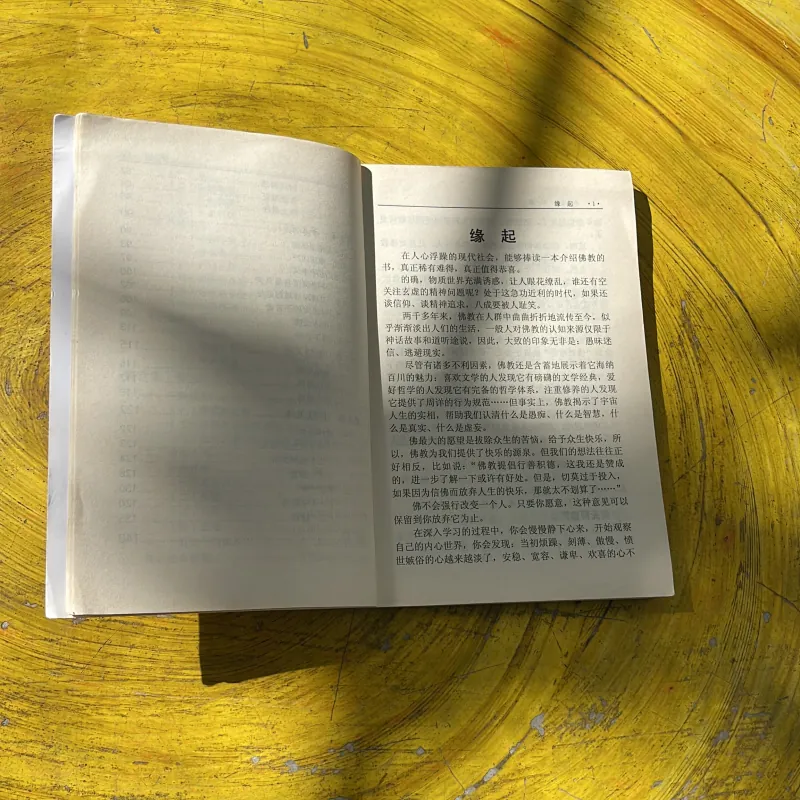 缘 起 •1•
缘 起
在人心浮躁的现代社会，能够捧读一本介绍佛教的
书，真正稀有难得，真正值得恭喜。
的确，物质世界充满诱惑，让人眼花缭乱，谁还有空
关注玄虚的精神问题呢？处于这急功近利的时代，如果还
谈信仰、谈精神追求，八成要被人耻笑。
两千多年来，佛教在人群中曲曲折折地流传至今，似
乎渐渐淡出人们的生活，一般人对佛教的认知来源仅限于
神话故事和道听途说，因此，大致的印象无非是：愚昧迷
信、逃避现实。
尽管有诸多不利因素，佛教还是含蓄地展示着它海纳
百川的魅力：喜欢文学的人发现它有磅礴的文学经典，爱
好哲学的人发现它有完备的哲学体系，注重修养的人发现
它提供了周详的行为规范……但事实上，佛教揭示了宇宙
人生的实相，帮助我们认清什么是愚痴、什么是智慧，什
么是真实、什么是虚妄。
佛最大的愿望是拔除众生的苦恼，给予众生快乐，所
以，佛教为我们提供了快乐的源泉，但我们的想法往往正
好相反，比如说：“佛教提倡行善积德，这我还是赞成
的，进一步了解一下或许有好处。但是，切莫过于投入，
如果因为信佛而放弃人生的快乐，那就太不划算了……”
佛不会强行改变一个人。只要你愿意，这种意见可以
保留到你放弃它为止。
在深入学习的过程中，你会慢慢静下心来，开始观察
自己的内心世界，你会发现：当初烦躁、刻薄、傲慢、愤
世嫉俗的心越来越淡了，安稳、宽容、谦卑、欢喜的心不